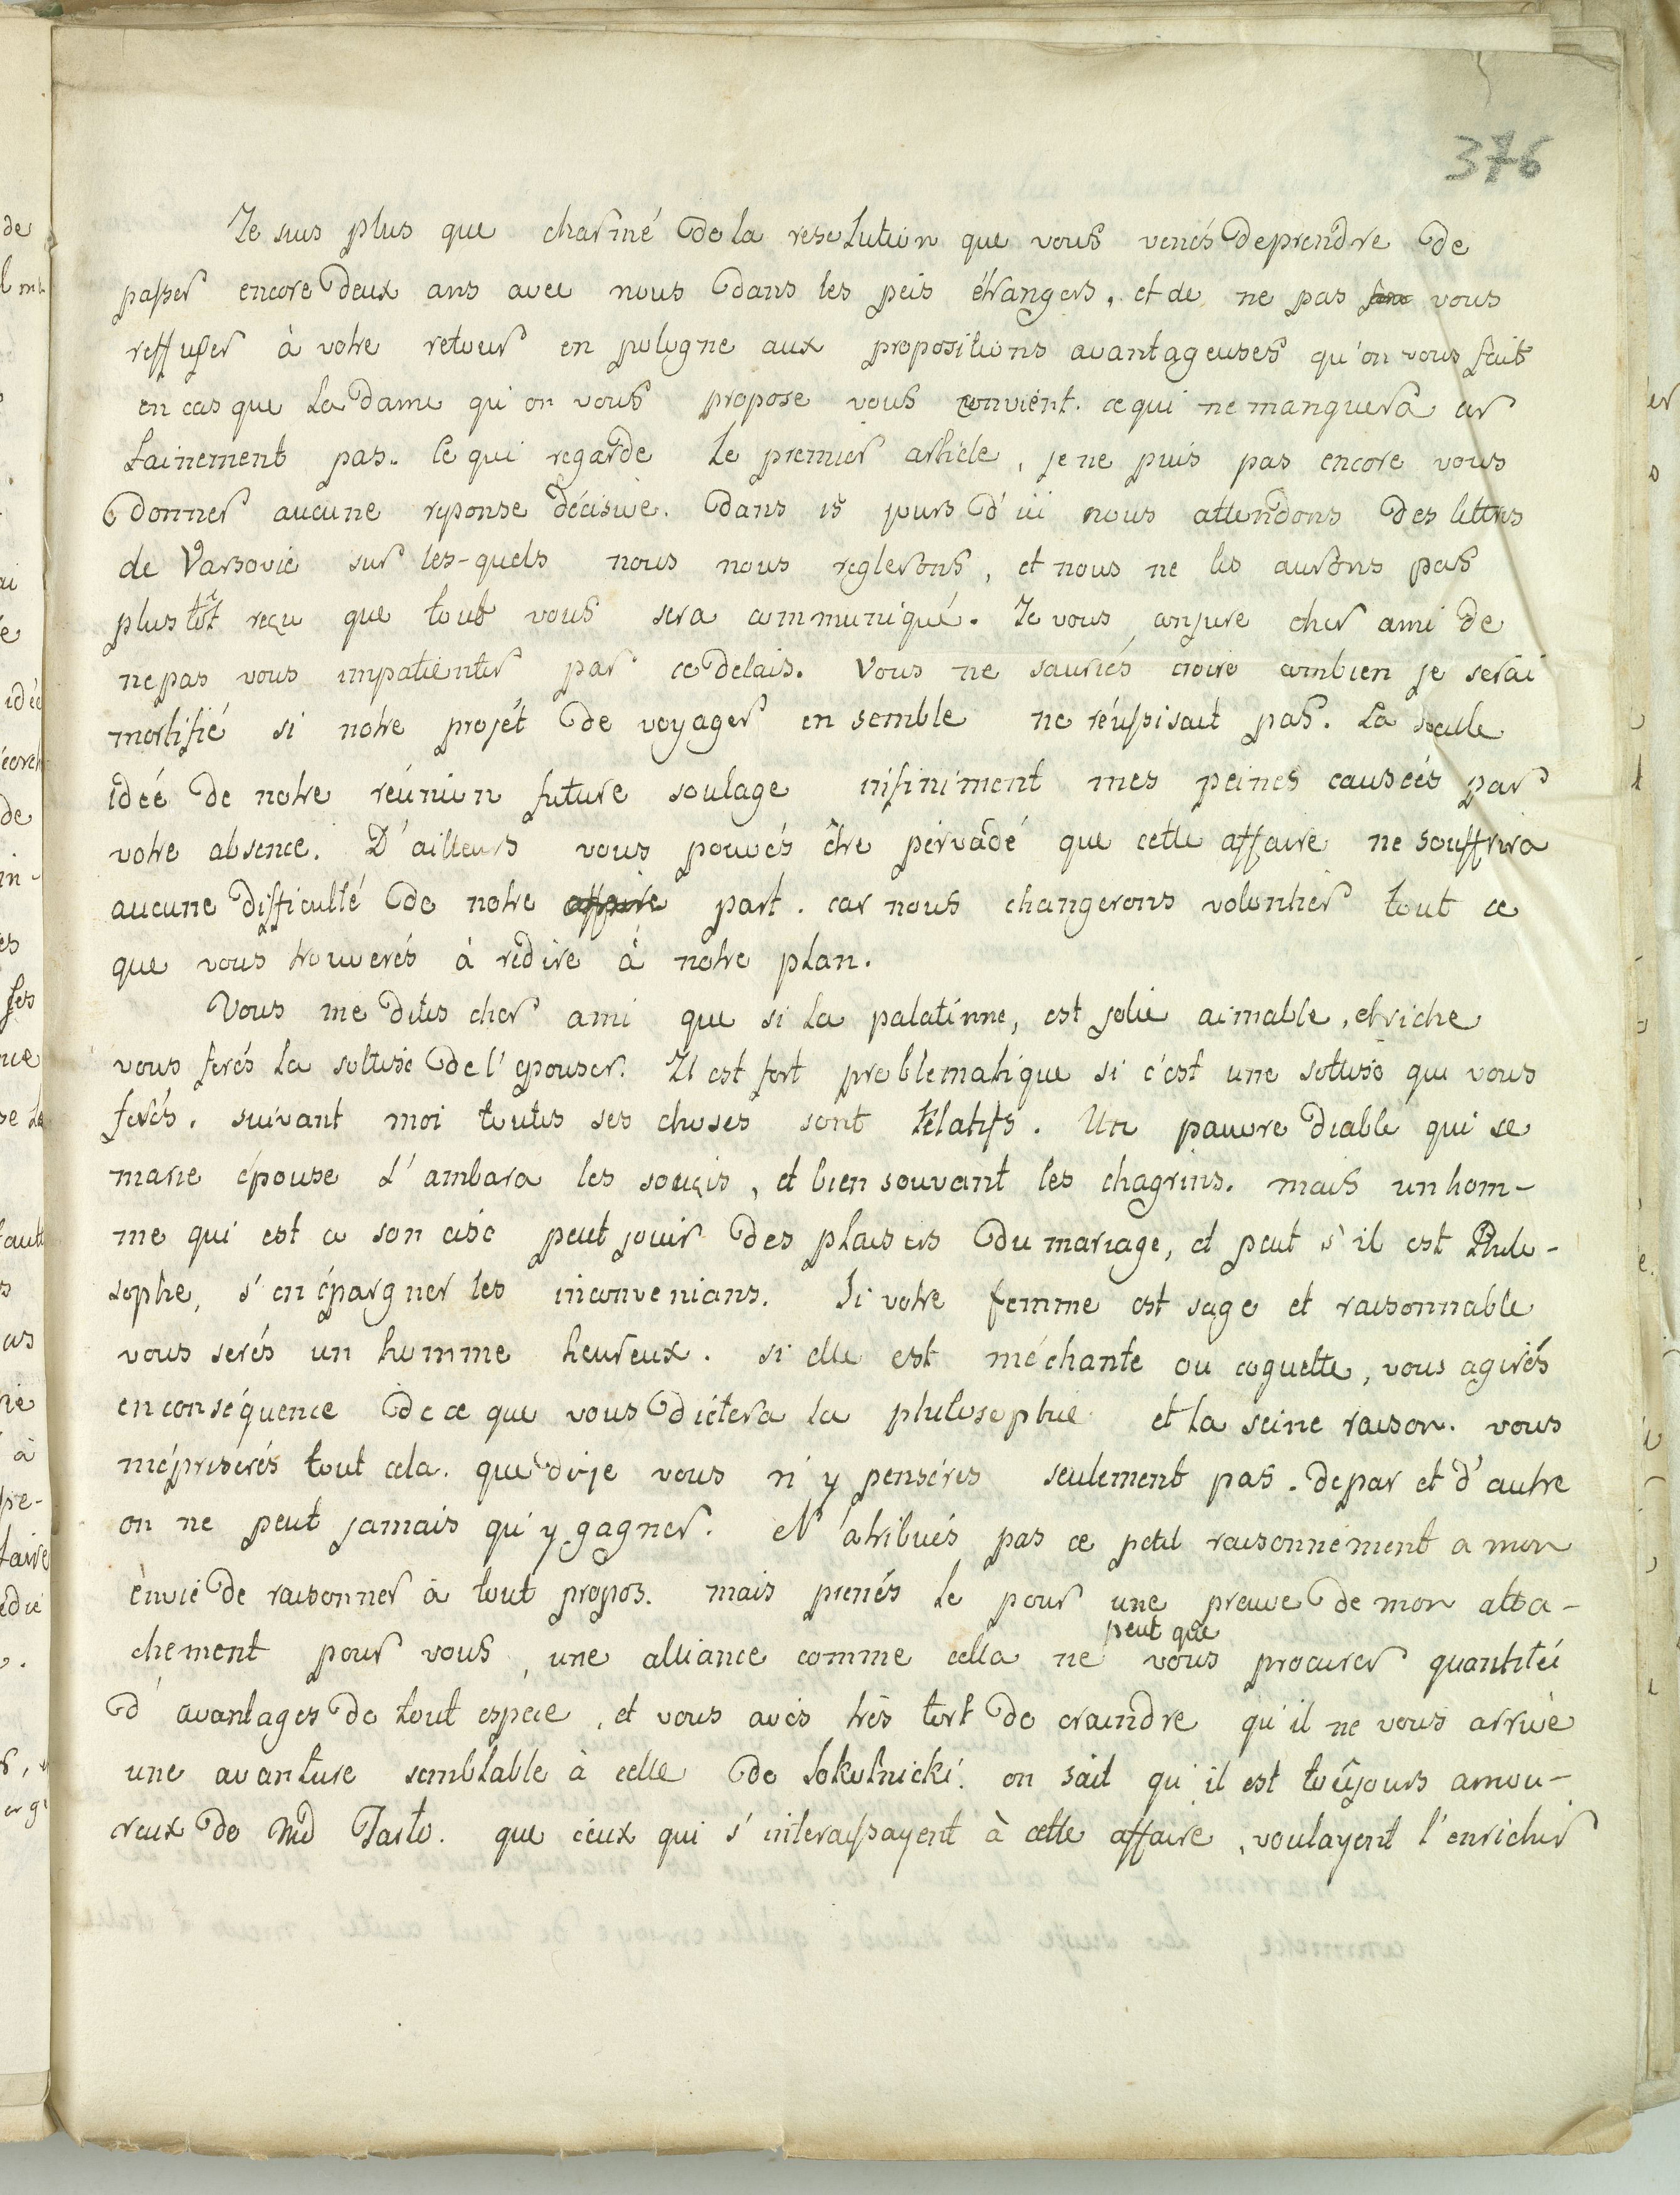 376
Je suis plus que charmé de la resolution que vous venés de prendre de
passer encore deux ans avec nous dans les peis étrangers, et de ne pas vous
reffuser à votre retour en pologne aux propositions avantageuses qu'on vous fait
en cas que la dame qu'on vous propose vous convient. ce qui ne manquera cer
tainement pas. Ce qui regarde le premier article, je ne puis pas encore vous
donner aucune reponse décisive. dans 15 jours d'ici nous attendons des lettres
de Varsovie sur les-quels nous nous reglerons, et nous ne les aurons pas
plus tôt reçu que tout vous sera communiqué. Je vous conjure cher ami de
ne pas vous impatienter par ce delais. Vous ne sauriés croire combien je serai
mortifié si notre projét de voyager en semble ne réussisait pas. La seulle
idée de notre réunion future soulage infiniment mes peines causées par
votre absence. D'ailleurs vous pouvés être pérvadé que cette affaire ne souffrira
aucune difficulté de notre affaire part. car nous changerons volontier tout ce
que vous trouverés à rédire à notre plan.
Vous me dites cher ami que si la palatinne, est jolie aimable, et riche
vous ferés la sottise de l'epouser. Il est fort problematique si c'est une sottise que vous
ferés. suivant moi toutes ses choses sont rélatifs. Un pauvre diable qui se
marie épouse l'ambara les souçis, et bien souvant les chagrins. mais un hom-
me qui est a son aise peut jouir des plaisirs du mariage, et peut s'il est Philo-
sophe, s'en épargner les inconvenians. Si votre femme est sage et raisonnable
vous serés un homme heureux. si elle est méchante ou coquette, vous agirés
en conséquence de ce que vous dictera la philosophie et la seine raison. vous
mépriserés tout cela. que di-je vous n'y penserés seulement pas. de par et d'autre
on ne peut jamais qu'y gagner. N'atribués pas ce petit raisonnement a mon
envie de raisonner à tout propos. mais prenés le pour une preuve de mon atta-
chement pour vous, une alliance comme cella ne peut que vous procurer quantitéé
d'avantages de tout espece, et vous avés très tort de craindre qu'il ne vous arrive
une avanture semblable à celle de Sokolnicki. on sait qu'il est toûjours amou-
reux de Md Tarlo. que ceux qui s'interassayent à cette affaire, voulayent l'enrichir